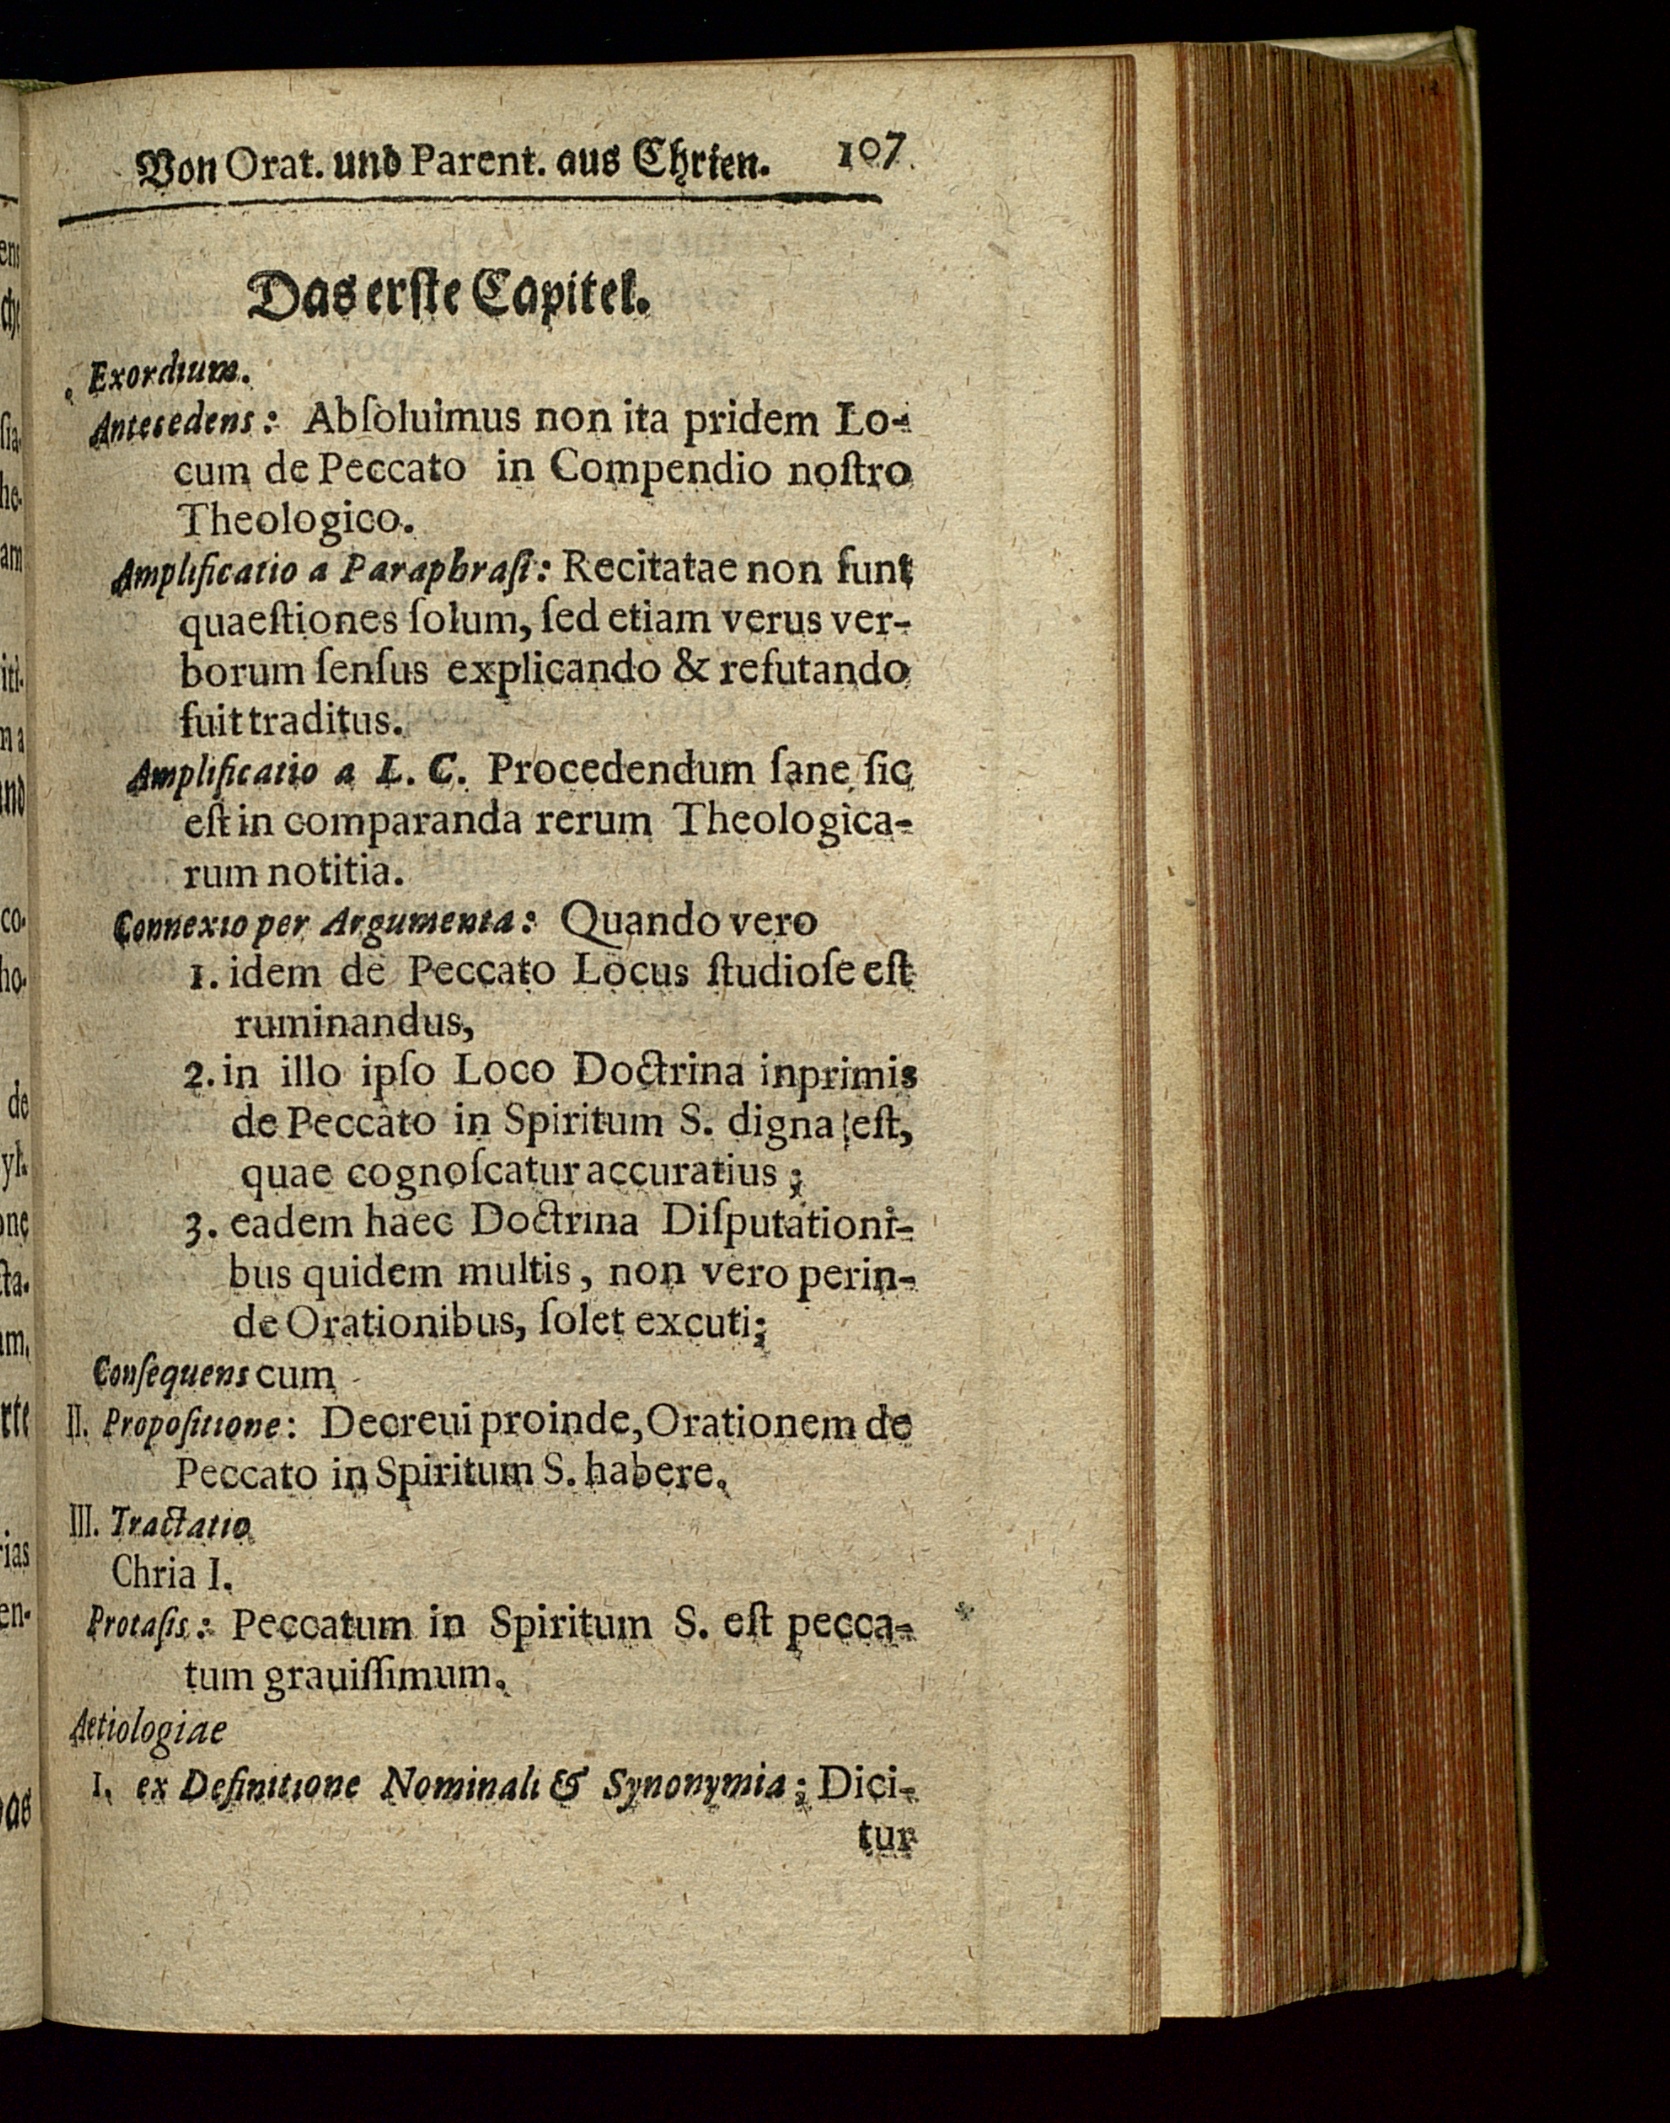 Von Orat. und Parent. aus Chrien. 107
Das erste Capitel.
. Exordium.
Antecedens: Abſoluimus non ita pridem Lo-
cum de Peccato in Compendio noſtro
Theologico.
Amplificatio a Paraphraſi: Recitatae non ſunt
quaeſtiones ſolum, ſed etiam verus ver-
borum ſenſus explicando & refutando
fuit traditus.
Amplificatio a L. C. Procedendum ſane ſic
eſt in comparanda rerum Theologica-
rum notitia.
Connexio per Argumenta: Quando vero
1. idem de Peccato Locus ſtudioſe eſt
ruminandus,
2. in illo ipſo Loco Doctrina inprimis
de Peccato in Spiritum S. digna eſt,
quae cognoſcatur accuratius;
3. eadem haec Doctrina Diſputationi-
bus quidem multis, non vero perin-
de Orationibus, ſolet excuti;
Conſequens cum
II. Propoſitione: Decreui proinde, Orationem de
Peccato in Spiritum S. habere.
III. Tractatio
Chria I.
Protaſis: Peccatum in Spiritum S. eſt pecca-
tum grauiſſimum.
Aetiologiae
1. ex Definitione Nominali & Synonymia; Dici-
tur